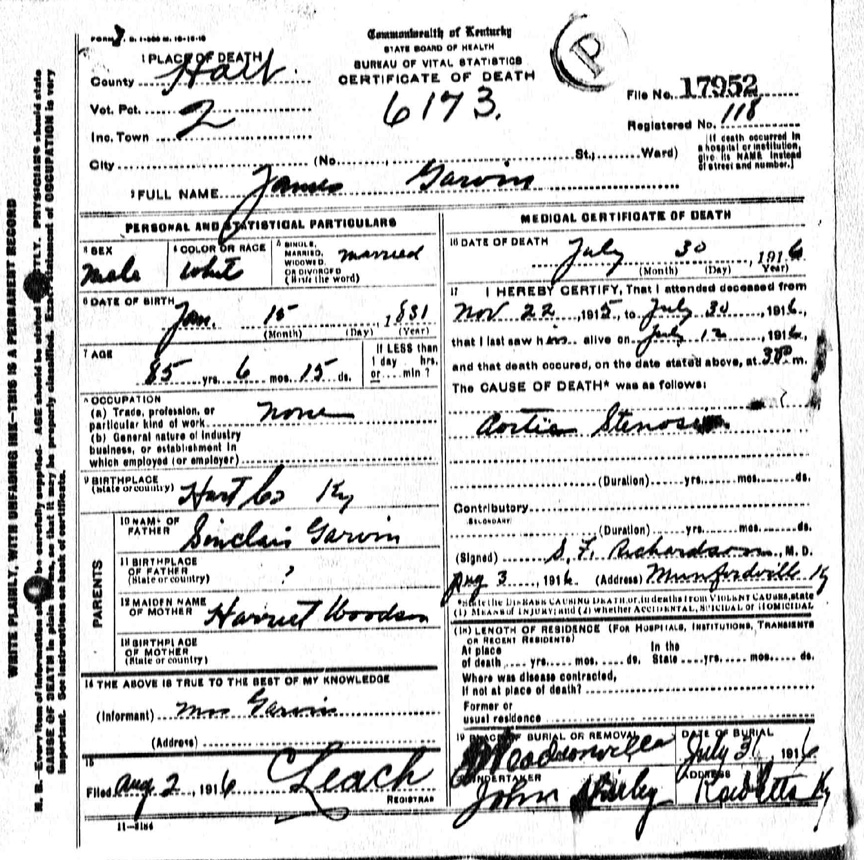 Commonwealth of Kentucky
STATE BOARD OF HEALTH
BUREAU OF VITAL STATISTICS
CERTIFICATE OF DEATH
6173.
P
1 PLACE OF DEATH
County Hart
Vot. Pct. 2
Inc. Town
City (No. St.; Ward)
File No. 17952
Registered No. 118
[If death occurred in
a hospital or institution,
give its NAME instead
of street and number.]
2 FULL NAME James Garvin
PERSONAL AND STATISTICAL PARTICULARS
3 SEX
Male
4 COLOR OR RACE
White
5 SINGLE,
MARRIED,
WIDOWED,
OR DIVORCED
(Write the word)
married
6 DATE OF BIRTH
Jan. 15, 1831
(Month) (Day) (Year)
7 AGE
85 yrs. 6 mos. 15 ds.
If LESS than
1 day hrs.
or min?
8 OCCUPATION
(a) Trade, profession, or
particular kind of work none
(b) General nature of industry
business, or establishment in
which employed (or employer)
9 BIRTHPLACE
(State or country) Hart Co Ky
PARENTS
10 NAME OF
FATHER Sinclair Garvin
11 BIRTHPLACE
OF FATHER
(State or country) ?
12 MAIDEN NAME
OF MOTHER Harriet Woodson
13 BIRTHPLACE
OF MOTHER
(State or country)
14 THE ABOVE IS TRUE TO THE BEST OF MY KNOWLEDGE
(Informant) Mrs Garvin
(Address)
15
Filed Aug 2, 1916 C Leach
REGISTRAR
11-3184
MEDICAL CERTIFICATE OF DEATH
16 DATE OF DEATH
July 30, 1916
(Month) (Day) (Year)
17 I HEREBY CERTIFY, That I attended deceased from
Nov 22, 1915, to July 30, 1916,
that I last saw him alive on July 12, 1916,
and that death occured, on the date stated above, at m.
The CAUSE OF DEATH* was as follows:
Aortic Stenosis
(Duration) yrs. mos. ds.
Contributory
SECONDARY
(Duration) yrs. mos. ds.
(Signed) S. F. Richardson, M. D.
Aug 3, 1916 (Address) Munfordville Ky
*State the DISEASE CAUSING DEATH, or, in deaths from VIOLENT CAUSES, state
(1) MEANS OF INJURY; and (2) whether ACCIDENTAL, SUICIDAL or HOMICIDAL
(18) LENGTH OF RESIDENCE (FOR HOSPITALS, INSTITUTIONS, TRANSIENTS
OR RECENT RESIDENTS)
At place
of death yrs. mos. ds.
In the
State yrs. mos. ds.
Where was disease contracted,
If not at place of death?
Former or
usual residence
19 PLACE OF BURIAL OR REMOVAL
DATE OF BURIAL
July 31 1916
20 UNDERTAKER
John Shirley
ADDRESS
Ky
WRITE PLAINLY, WITH UNFADING INK—THIS IS A PERMANENT RECORD
N. B.—Every item of information should be carefully supplied. AGE should be stated EXACTLY. PHYSICIANS should state
CAUSE OF DEATH in plain terms, so that it may be properly classified. Exact statement of OCCUPATION is very
important. See instructions on back of certificate.